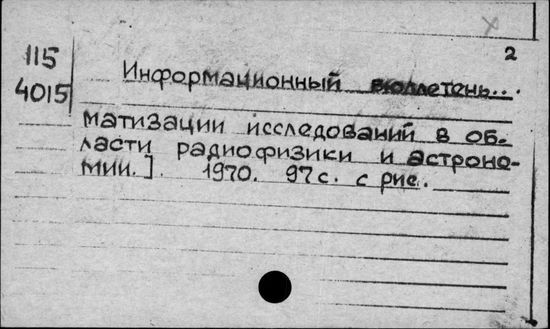 2
115
4015
Информационный бюллетень...
матизации исследований в об-
ласти радиофизики и астроно-
мии.]. 1970. 97с. с рис.